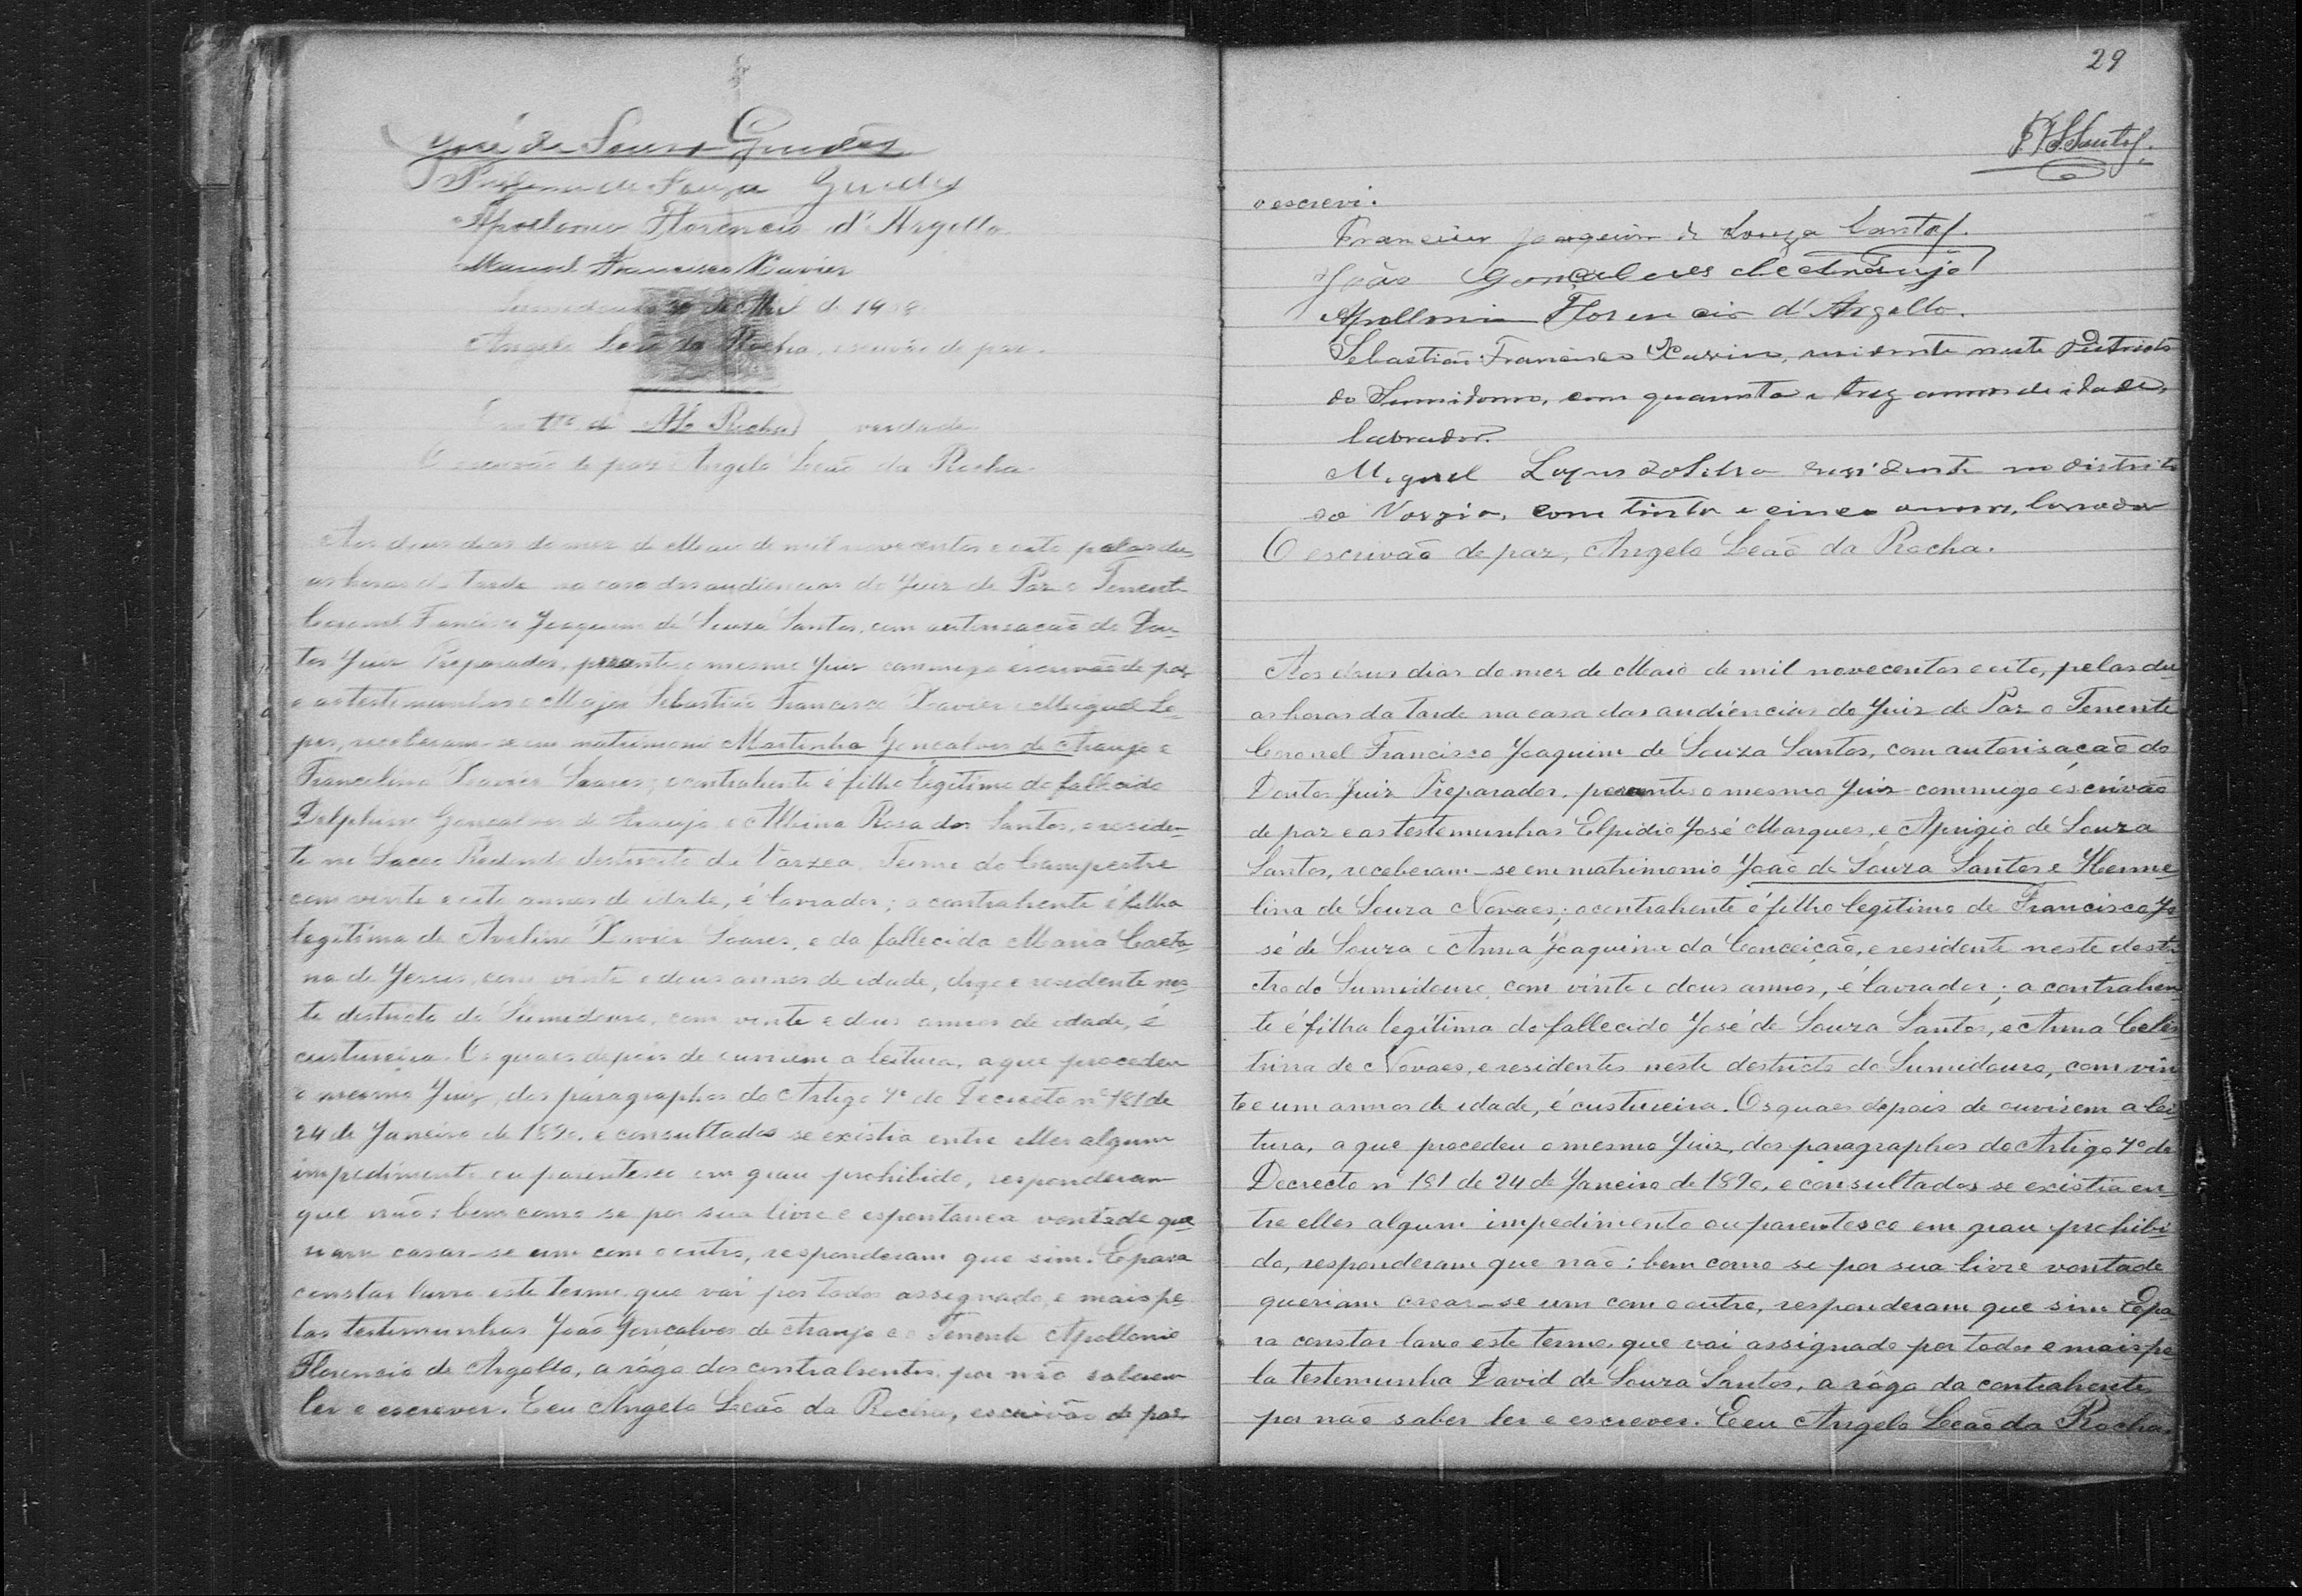 José de Souza Guedes
de Souza Guedes
Apollonio Florencio d'Argollo
Manoel Francisco Xavier
Sumidouro 30 de Abril de 1908
Angelo Leaõ da Rocha, escrivão de paz.
Em tto. de ALRocha verdade
O escrivão de paz Angelo Leaõ da Rocha
Aos dous dias do mez de Maio de mil novecentos e oito, pelas du-
as horas da tarde na casa das audiencias do Juiz de Paz o Tenente
Coronel Francisco Joaquim de Souza Santos, com autorisacaõ do Dou-
tor Juiz Preparador, perante o mesmo Juiz commigo escrivaõ de paz
e as testemunhas o Major Sebastião Francisco Xavier e Miguel Lo-
pes, receberam-se em matrimonio Martinho Goncalves de Araujo e
Francelina Xavier Soares; o contrahente é filho legitimo do fallecido
Delphino Goncalves de Araujo e Albina Rosa dos Santos, e residen-
te no Sacco Redondo destricto da Varzea, Termo do Campestre
com vinte e oito annos de idade, é lavrador; a contrahente é filha
legitima de Avelino Xavier Soares, e da fallecida Maria Caeta-
na de Jesus, com vinte e dous annos de idade, digo e residente nes-
te destricto do Sumidouro, com vinte e dous annos de idade, é
custureira. Os quaes depois de ouvirem a leitura, a que procedeu
o mesmo Juiz, dos paragraphos do Artigo 7º do Decreto nº 181 de
24 de Janeiro de 1890, e consultados se existia entre elles algum
impedimento ou parentesco em grau prohibido, responderam
que não: bem como se por sua livre e espontanea vontade que-
riam casar-se um com o outro, responderam que sim. E para
constar lavro este termo que vai por todos assignado, e mais pe-
las testemunhas João Goncalves de Araujo e o Tenente Apollonio
Florencio de Argollo, a rôgo dos contrahentes, por não saberem
ler e escrever. Eeu Angelo Leaõ da Rocha, escrivão de paz
29
F.J.S.Santos.
o escrevi.
Francisco Joaquim de Souza Santos.
João Gonçalves de Araujo
Apollonio Florencio d'Argollo.
Sebastião Francisco Xavier, residente neste Districto
do Sumidouro, com quarenta e trez annos de idade,
lavrador.
Miguel Lopes da Silva residente no distrito
da Varzia, com trinta e cinco annos, lavrador
O escrivaõ de paz, Angelo Leaõ da Rocha.
Aos dous dias do mez de Maio de mil novecentos e oito, pelas du-
as horas da tarde na casa das audiencias do Juiz de Paz o Tenente
Coronel Francisco Joaquim de Souza Santos, com autorisaçaõ do
Doutor Juiz Preparador, perante o mesmo Juiz commigo escrivaõ
de paz e as testemunhas Elpidio José Marques, e Aprigio de Souza
Santos, receberam-se em matrimonio João de Souza Santos e Herme-
lina de Souza Novaes; o contrahente é filho legitimo de Francisco Jo-
sé de Souza e Anna Joaquina da Conceiçaõ, e residente neste destri-
cto do Sumidouro, com vinte e dous annos, é lavrador; a contrahen-
te é filha legitima do fallecido José de Souza Santos, e Anna Celes-
trina de Novaes, e residentes neste destricto do Sumidouro, com vin-
te e um annos de idade, é custureira. Os quaes depois de ouvirem a lei-
tura, a que procedeu o mesmo Juiz, dos paragraphos do Artigo 7º do
Decrecto nº 181 de 24 de Janeiro de 1890, e consultados se existia en-
tre elles algum impedimento ou parentesco em grau prohibi-
do, responderam que não: bem como se por sua livre vontade
queriam casar-se um com o outro, responderam que sim Epa-
ra constar lavro este termo que vai assignado por todos e mais pe-
la testemunha David de Souza Santos, a rôgo da contrahente,
por não saber ler e escrever. Eeu Angelo Leaõ da Rocha,